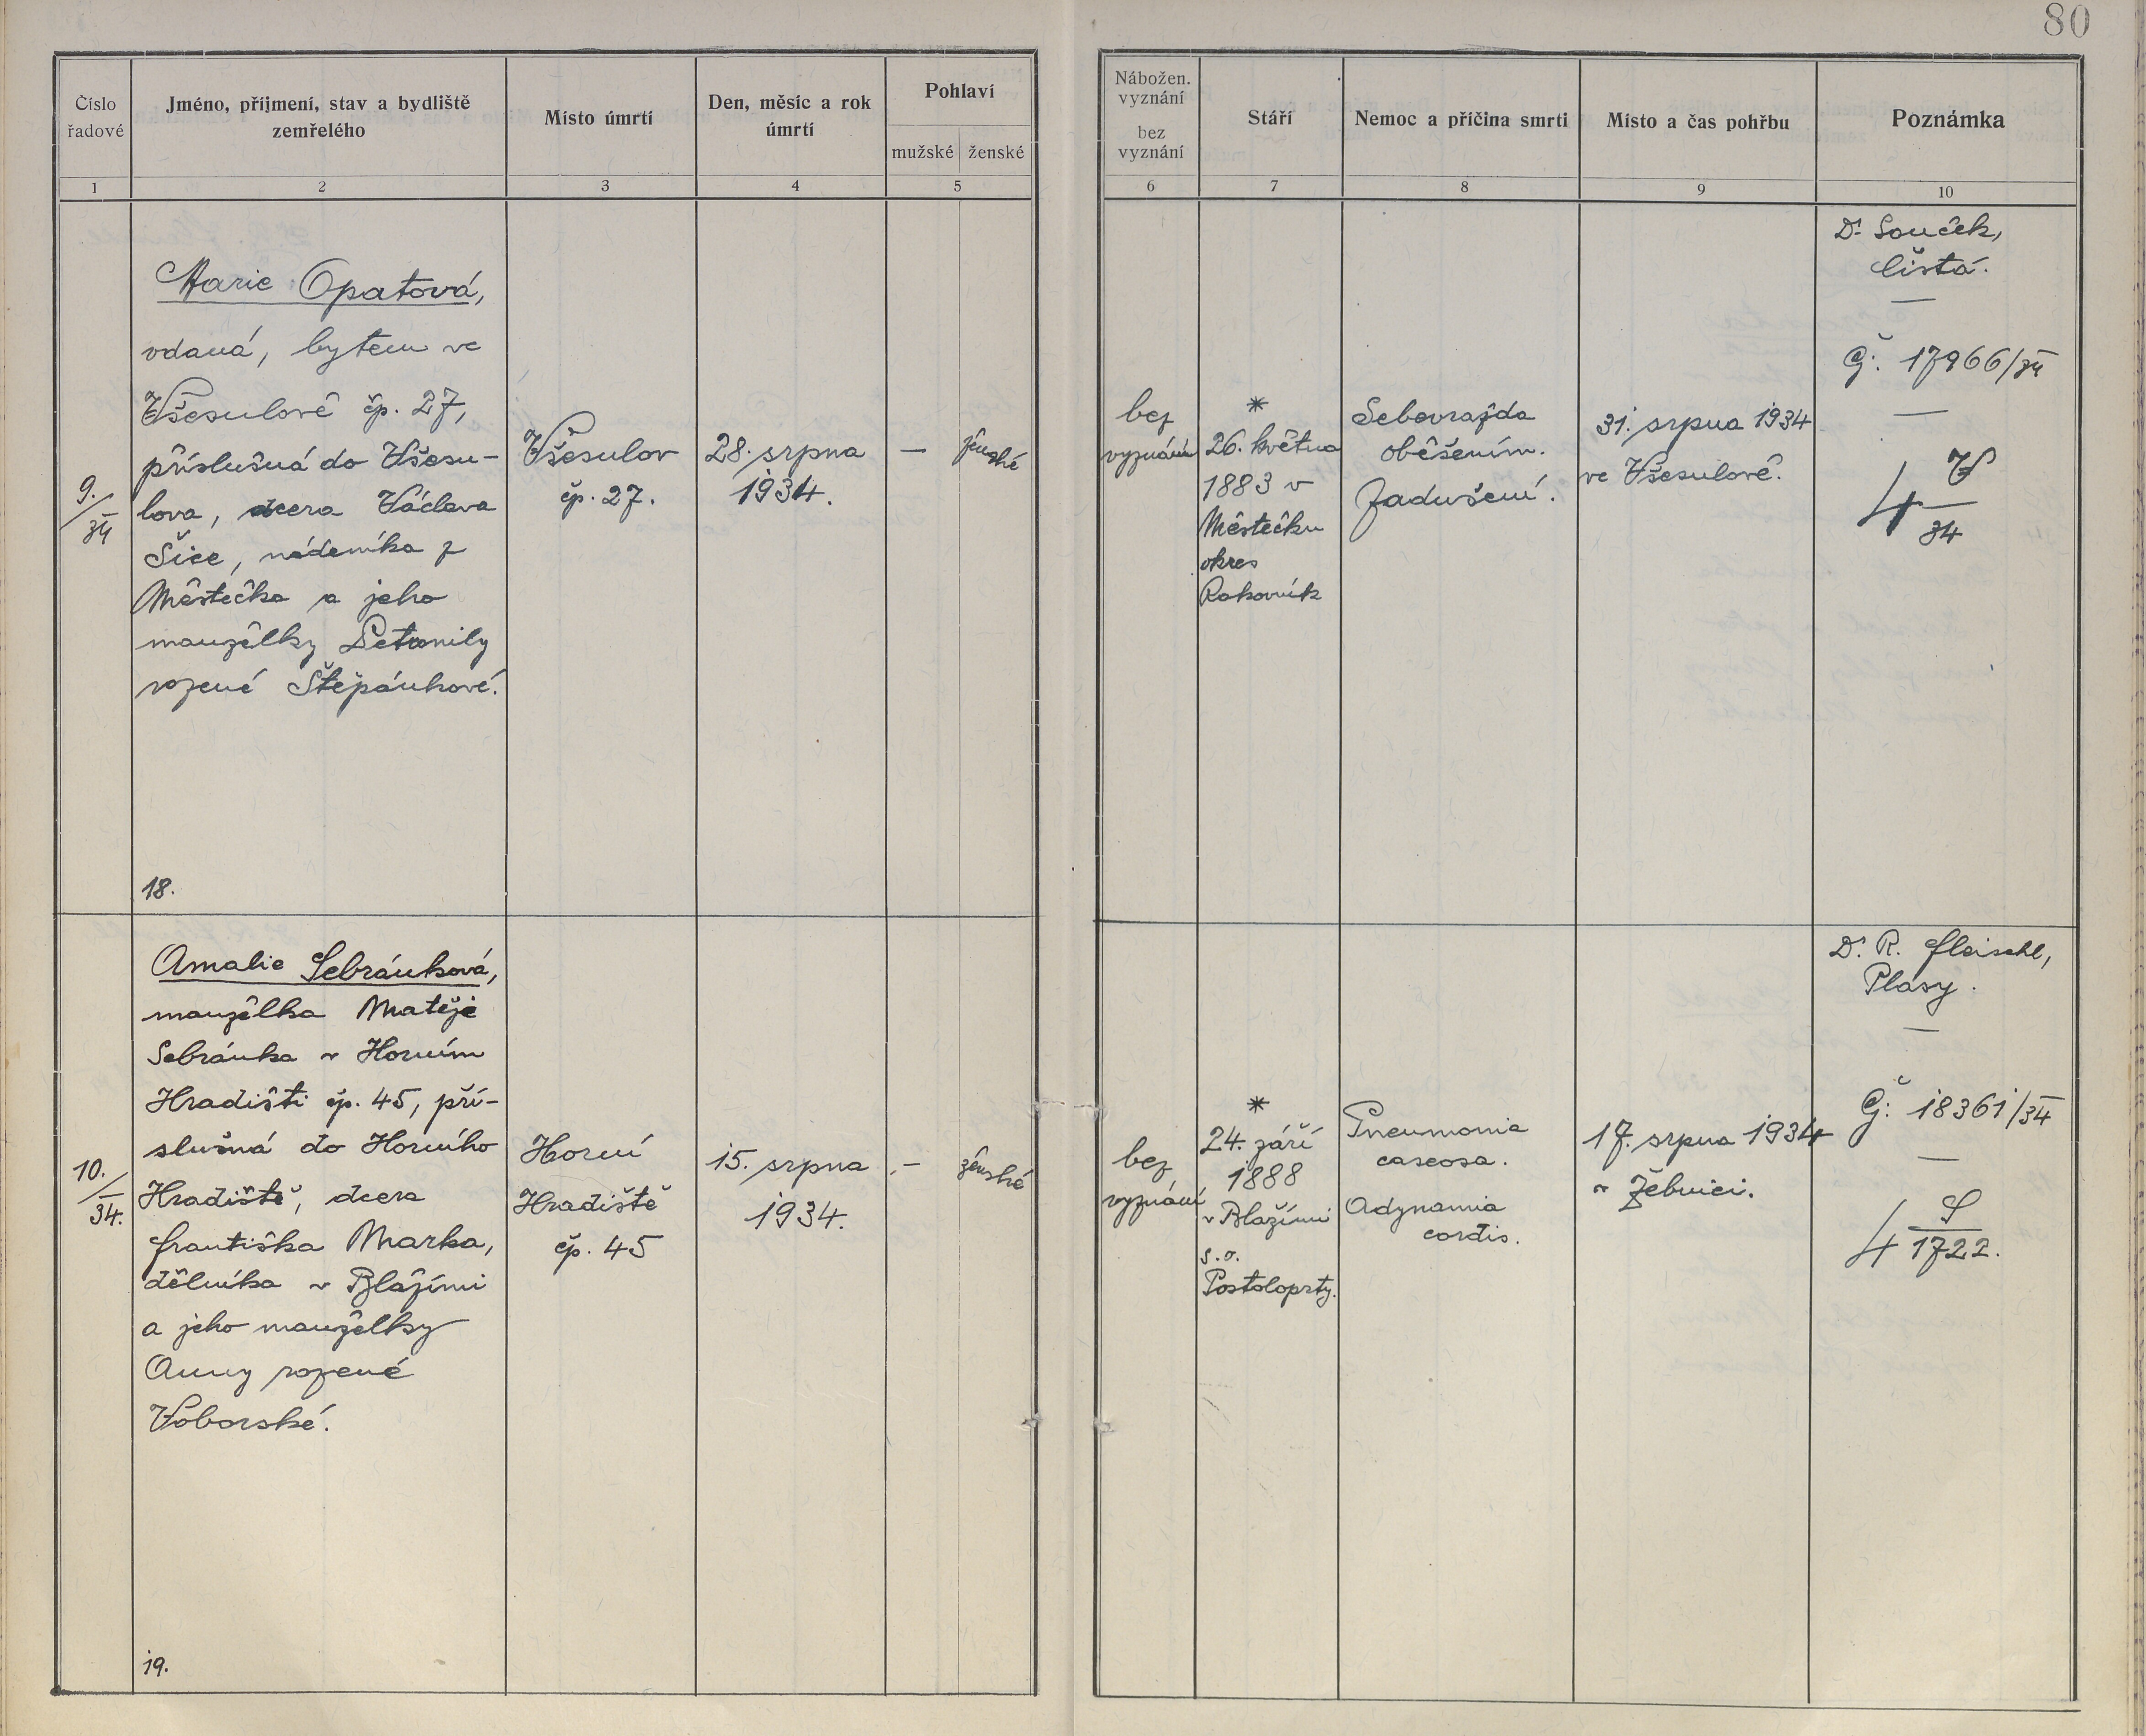 80
Číslo
řadové
Jméno, příjmení, stav a bydliště
zemřelého
Místo úmrtí
Den, měsíc a rok
úmrtí
Pohlaví
mužské
ženské
Nábožen.
vyznání
bez
vyznání
Stáří
Nemoc a příčina smrti
Místo a čas pohřbu
Poznámka
1
2
3
4
5
6
7
8
9
10
9./34
Marie Opatová,
vdaná, bytem ve
Všesulově čp. 27,
příslušná do Všesu-
lova, dcera Václava
Šíce, nádeníka z
Městečka a jeho
manželky Petronily
rozené Štěpánkové.
18.
Všesulov
čp. 27.
28. srpna
1934.
—
ženské
bez
vyznání
*
26. května
1883 v
Městečku
okres
Rakovník
Sebevražda
oběšením.
Zadušení.
31. srpna 1934
ve Všesulově.
Dr. Souček,
Čistá.
—
Čj: 17966/34
—
4 V
34
10./34.
Amalie Sebránková,
manželka Matěje
Sebránka v Horním
Hradišti čp. 45, pří-
slušná do Horního
Hradiště, dcera
Františka Marka,
dělníka v Blažími
a jeho manželky
Anny rozené
Voborské.
19.
Horní
Hradiště
čp. 45
15. srpna
1934.
—
ženské
bez
vyznání
*
24. září
1888
v Blažími
s.o.
Postoloprty.
Pneumonia
caseosa.
Adynamia
cordis.
17. srpna 1934
v Žebnici.
Dr. R. Fleischl,
Plasy.
—
Čj: 18361/34
—
4 S
1722.